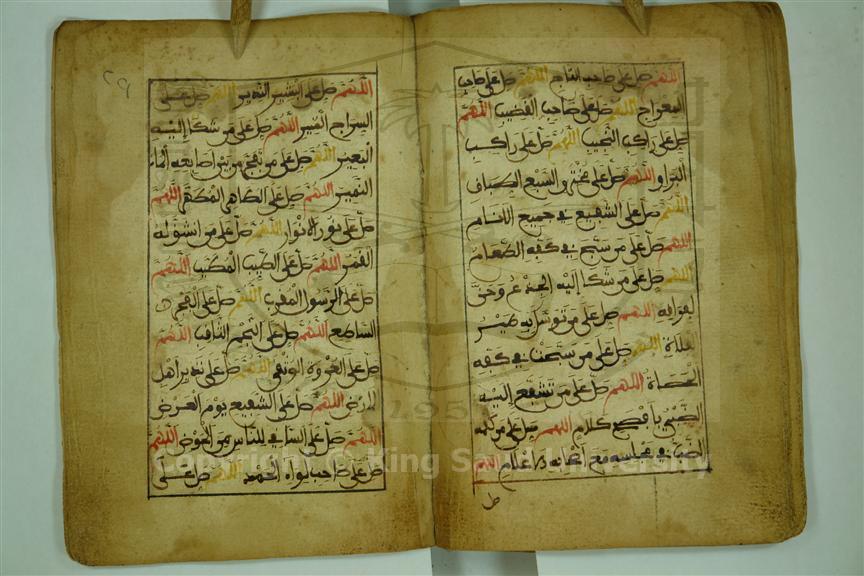 اللهم صل على صاحب التاج اللهم صل على صاحب
المعراج اللهم صل على صاحب القضيب اللهم
صل على راكب النجيب اللهم صل على راكب
البراق اللهم صل على مخترق السبع الطباق
اللهم صل على الشفيع في جميع الانام
اللهم صل على من سبح في كفه الطعام
اللهم صل على من شكا إليه الجذع وحن
لفراقه اللهم صل على من توسل به طير
الفلاة اللهم صل على من سبحت في كفه
الحصاة اللهم صل على من تشفع إليه
الظبي بافصح كلام اللهم صل على من كلمه
الضب في مجلسه مع أصحابه الاعلام اللهم
اللهم صل على البشير النذير اللهم صل على
السراج المنير اللهم صل على من شكا إليه
البعير اللهم صل على من تفجر من بين أصابعه الماء
النمير اللهم صل على الطاهر المطهر اللهم
صل على نور الانوار اللهم صل على من انشق له
القمر اللهم صل على الطيب المطيب اللهم
صل على الرسول المقرب اللهم صل على الفجر
الساطع اللهم صل على النجم الثاقب اللهم
صل على العروة الوثقى اللهم صل على نذير أهل
الارض اللهم صل على الشفيع يوم العرض
اللهم صل على الساقي للناس من الحوض اللهم
صل على صاحب لواء الحمد اللهم صل على
1957
Copyright © King Saud University